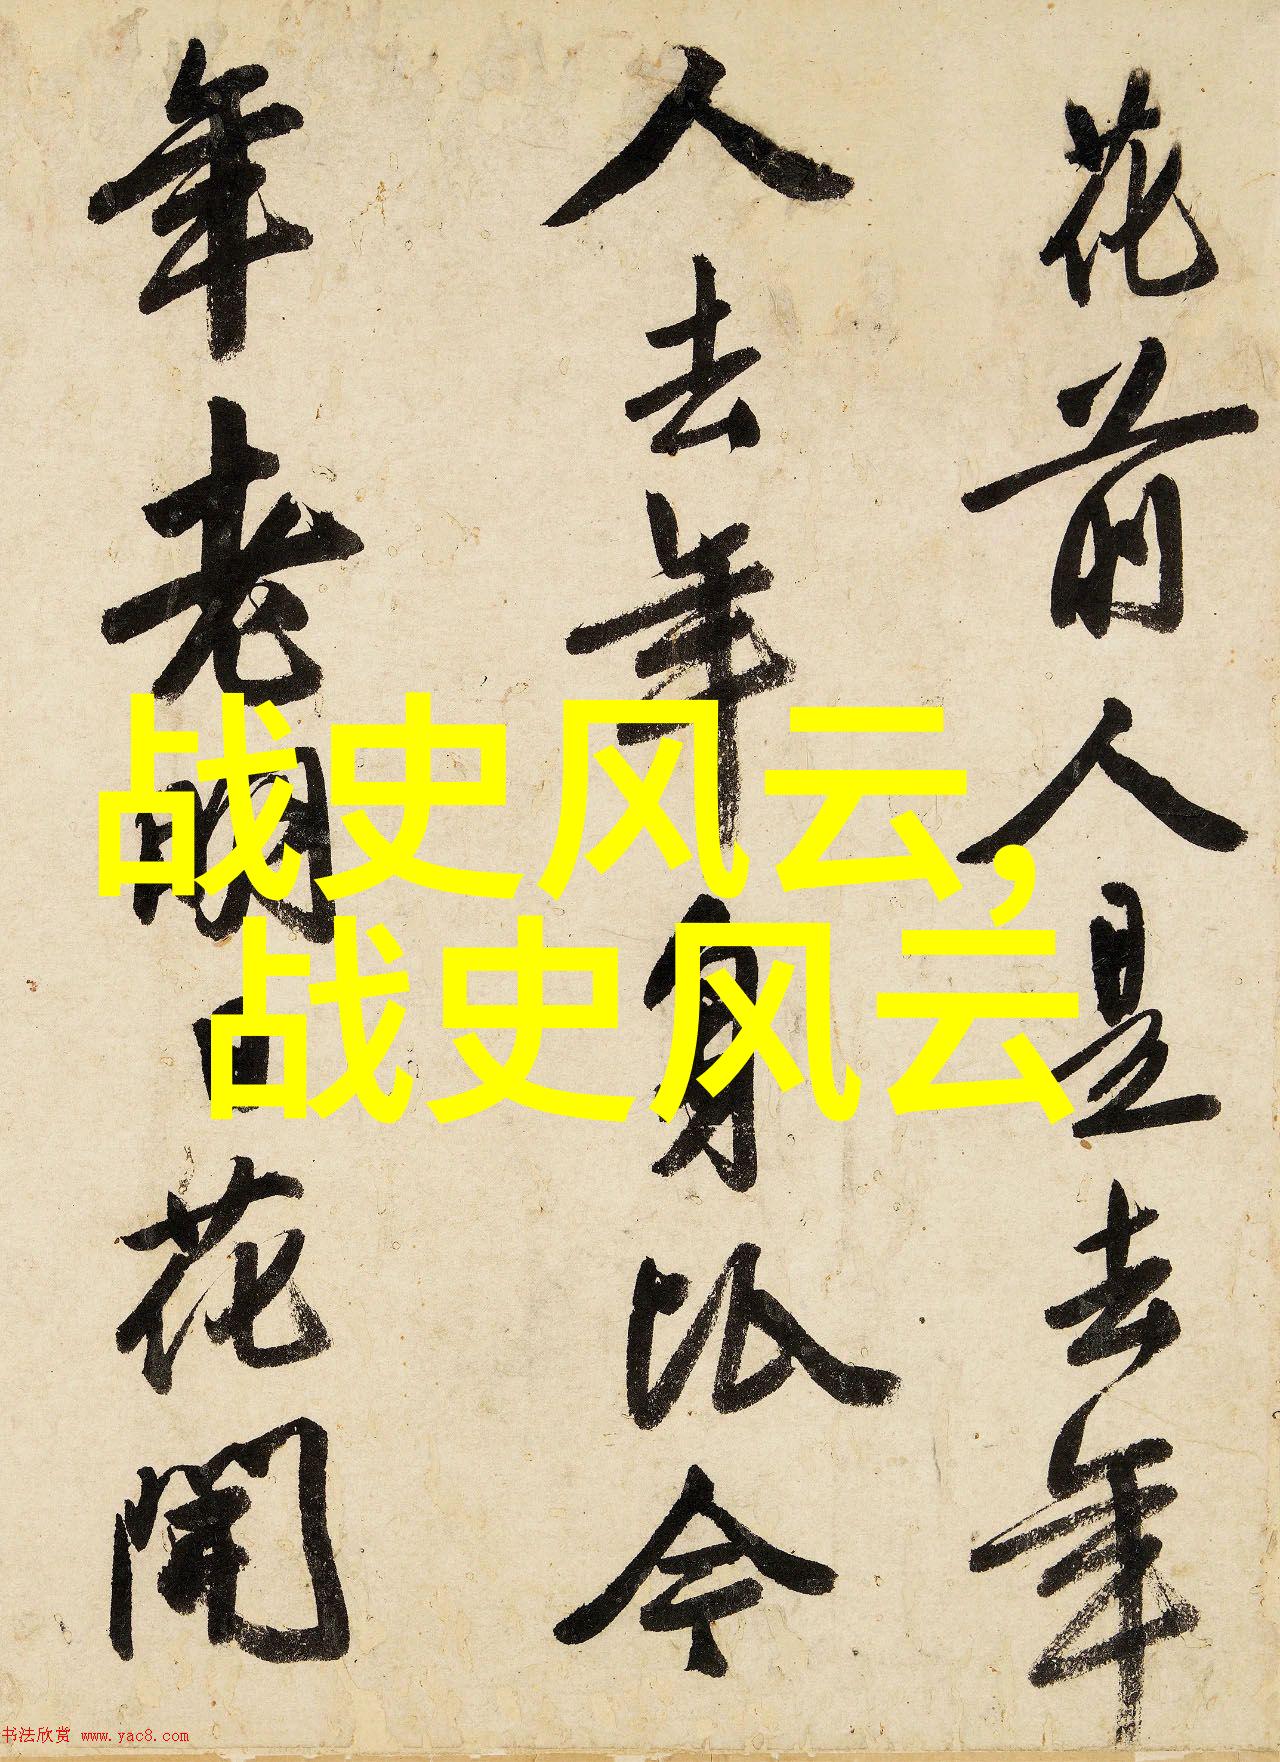 花前人是去年
人去年身比今
年老明日花開
战史风云,
战史风云
书法欣赏 www.yac8.com